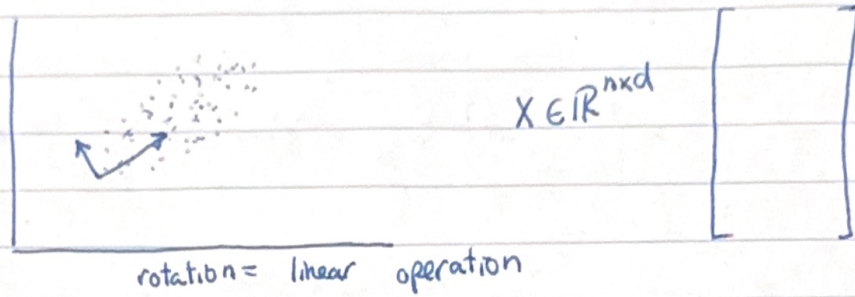 X ∈ ℝⁿˣᵈ
rotation = linear operation